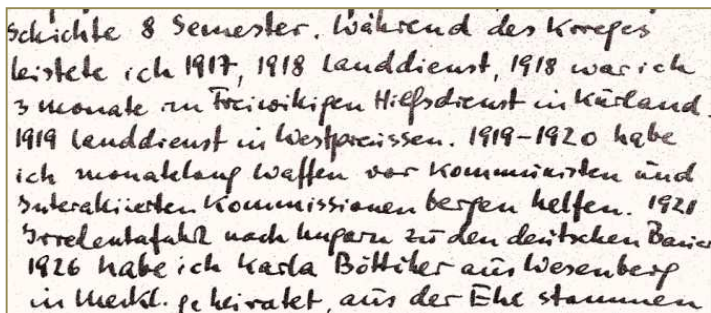 schichte 8 Semester. Während des Krieges
leistete ich 1917, 1918 Landdienst, 1918 war ich
3 Monate im Freiwilligen Hilfsdienst in Kurland.
1919 Landdienst in Westpreussen. 1919-1920 habe
ich monatelang Waffen vor Kommunisten und
Interalliierten Kommissionen bergen helfen. 1921
Irredentafahrt nach Ungarn zu den deutschen Bauer
1926 habe ich Karla Böttiher aus Wesenberg
in Meckl. geheiratet, aus der Ehe stammen